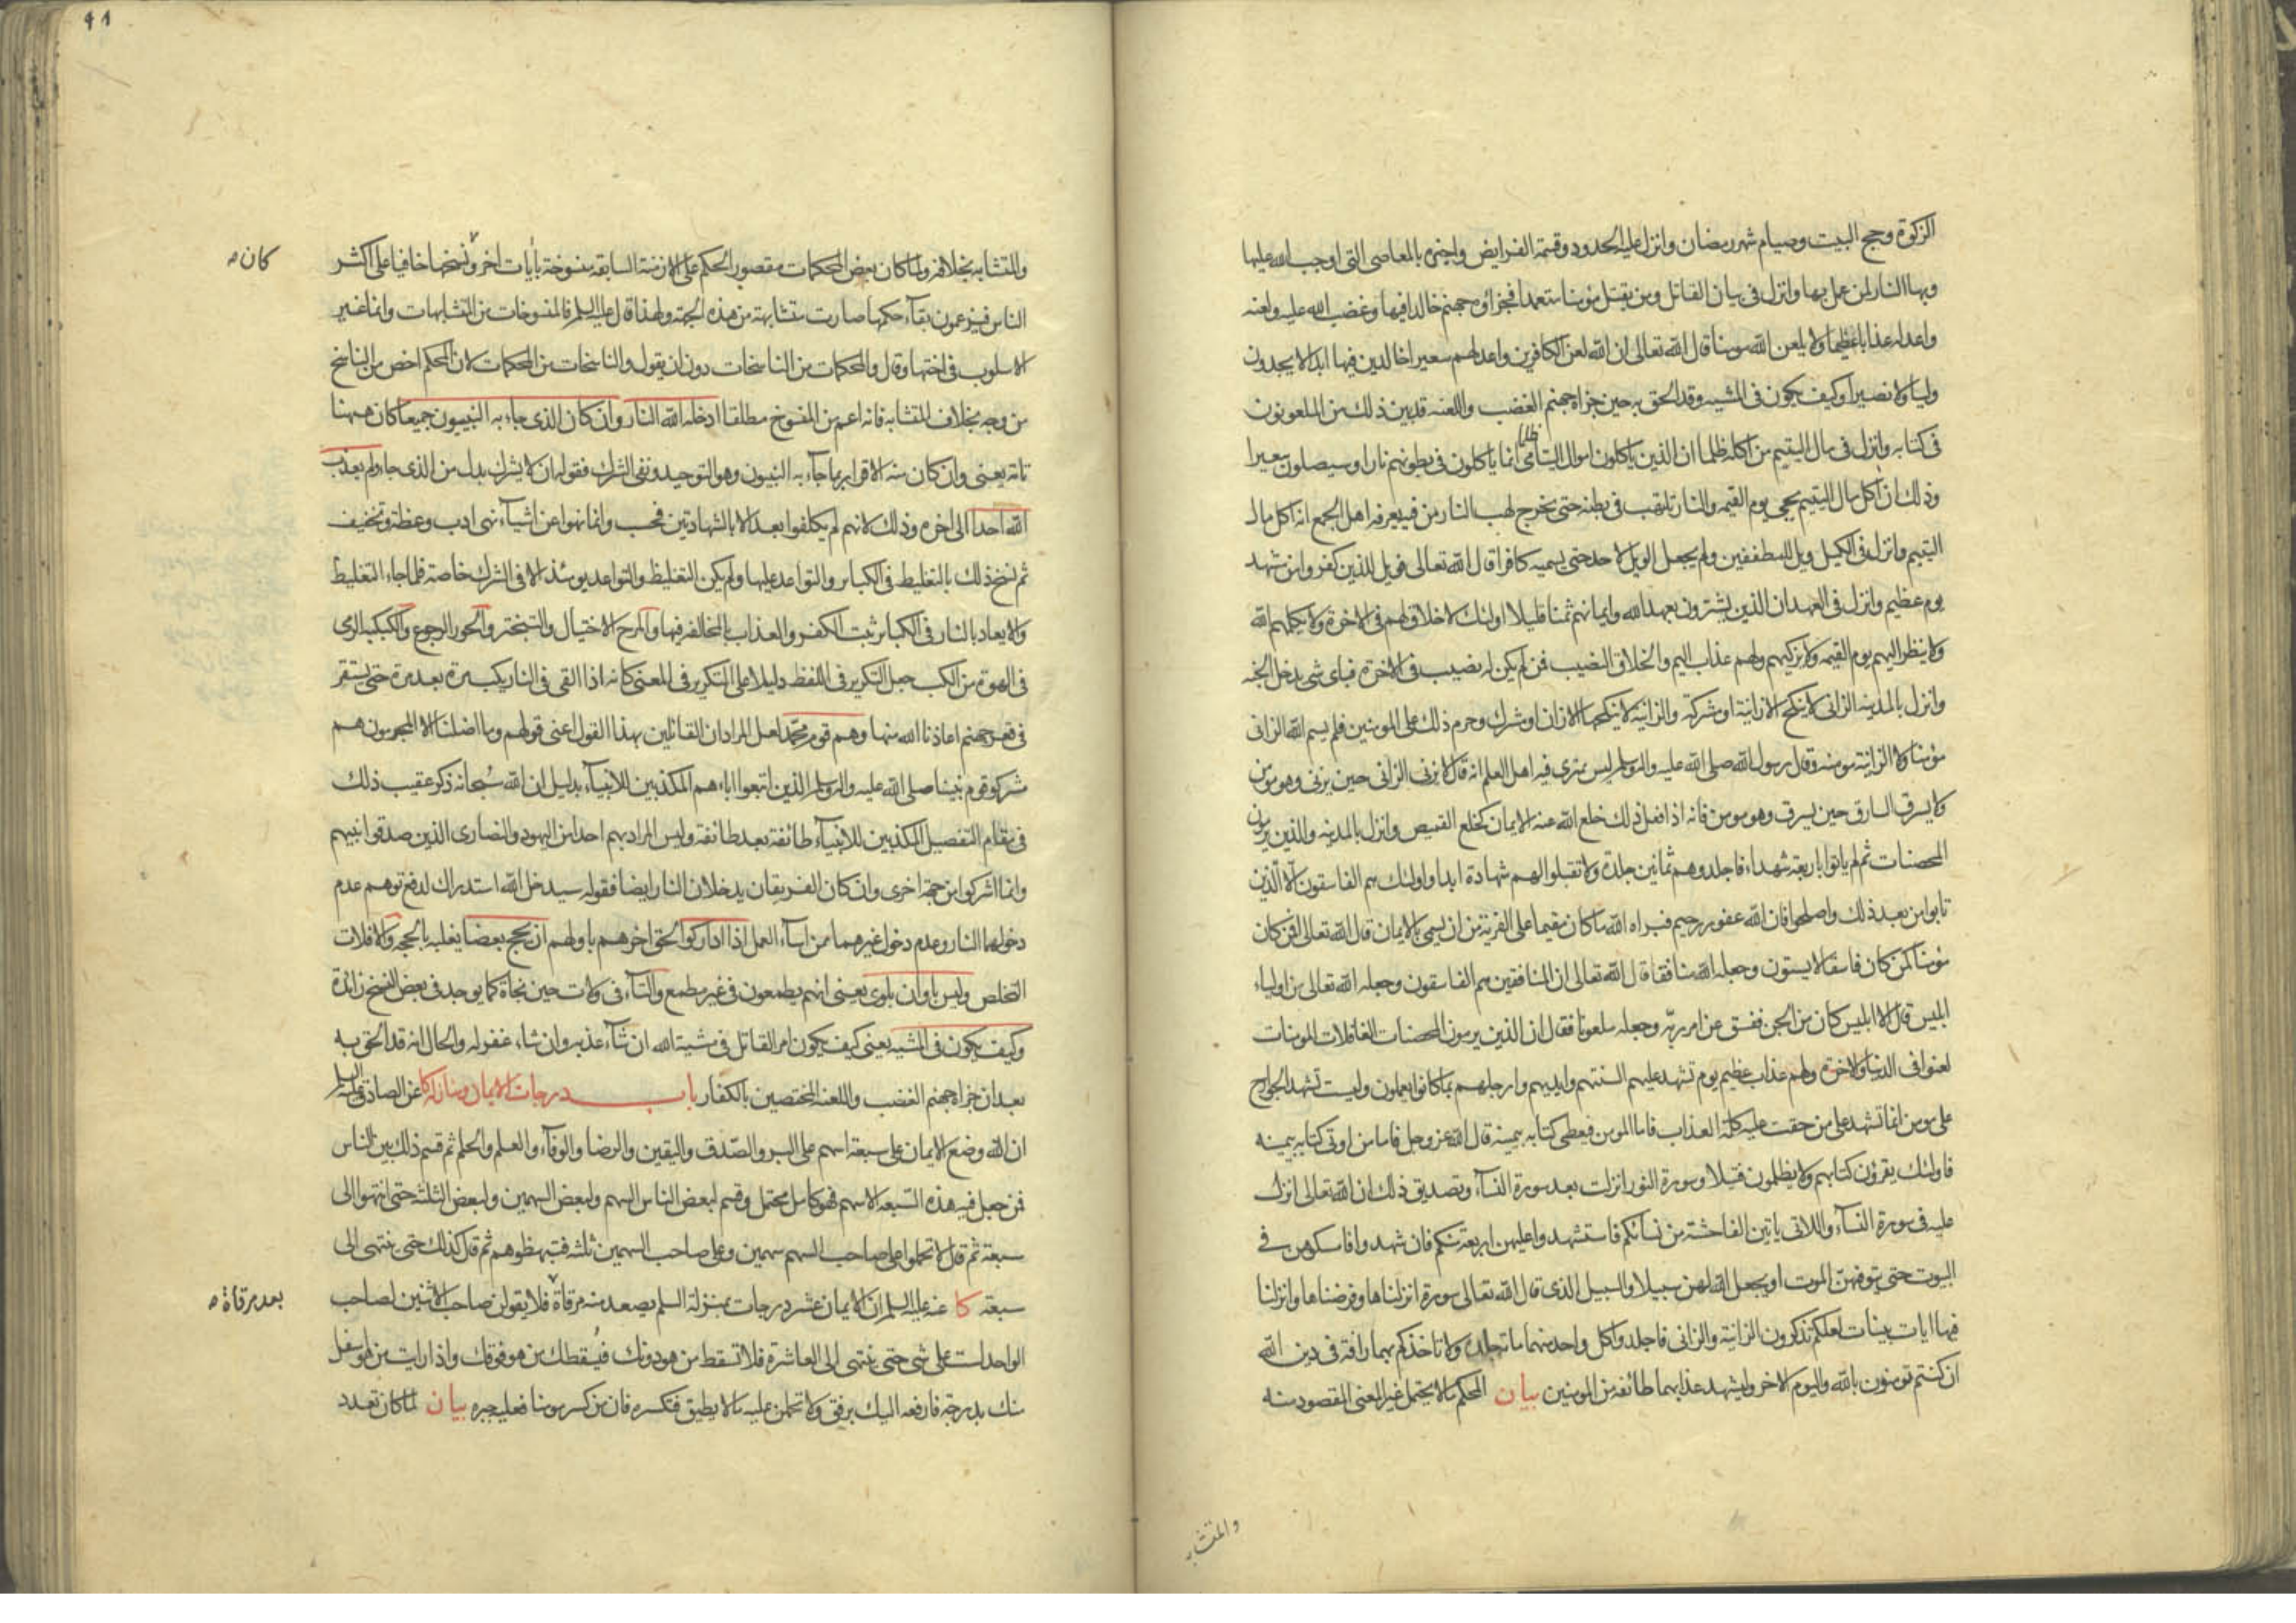 الزكوة وحج البيت وصيام شهر رمضان وانزل عليه الحدود وقسمة الفرايض واخبره بالمعاصى التى اوجب الله عليها
وبها النار لمن عمل بها وانزل فى بيان القاتل ومن يقتل مؤمنا متعمدا فجزاؤه جهنم خالدا فيها وغضب الله عليه ولعنه
واعد له عذابا عظيما ولا يلعن الله مومنا قال الله تعالى ان الله لعن الكافرين واعد لهم سعيرا خالدين فيها ابدا لا يجدون
وليا ولا نصيرا وكيف يكون فى المشيه وقد الحق به حين جزاه جهنم الغضب واللعنه قد بين ذلك من الملعونون
فى كتابه وانزل فى مال اليتيم من اكله ظلما ان الذين ياكلون اموال اليتامى ظلما انما ياكلون فى بطونهم نارا وسيصلون سعيرا
وذلك ان اكل مال اليتيم يجى يوم القيمه والنار تلتهب فى بطنه حتى يخرج لهب النار من فيه يعرفه اهل الجمع انه اكل مال
اليتيم وانزل فى الكيل ويل للمطففين ولم يجعل الويل لاحد حتى يسميه كافرا قال الله تعالى فويل للذين كفروا من مشهد
يوم عظيم وانزل فى العهد ان الذين يشترون بعهد الله وايمانهم ثمنا قليلا اولئك لا خلاق لهم فى الاخرة ولا يكلمهم الله
ولا ينظر اليهم يوم القيمه ولا يزكيهم ولهم عذاب اليم والخلاق النصيب فمن لم يكن له نصيب فى الاخرة فباى شى يدخل الجنه
وانزل بالمدينه الزانى لا ينكح الا زانية او مشركة والزانية لا ينكحها الا زان او مشرك وحرم ذلك على المومنين فلم يسم الله الزانى
مؤمنا ولا الزانية مومنه وقال رسول الله صلى الله عليه واله وسلم ليس يمترى فيه اهل العلم انه قال لا يزنى الزانى حين يزنى وهو مومن
ولا يسرق السارق حين يسرق وهو مومن فانه اذا فعل ذلك خلع الله عنه الايمان كخلع القميص وانزل بالمدينه والذين يرمون
المحصنات ثم لم ياتوا باربعة شهداء فاجلدوهم ثمانين جلدة ولا تقبلوا لهم شهادة ابدا واولئك هم الفاسقون الا الذين
تابوا من بعد ذلك واصلحوا فان الله غفور رحيم فبراه الله ما كان مقيما على الفرية من ان يسمى بالايمان قال الله تعالى افمن كان
مؤمنا كمن كان فاسقا لا يستون وجعله الله منافقا قال الله تعالى ان المنافقين هم الفاسقون وجعله الله تعالى من اولياء
ابليس قال الا ابليس كان من الجن ففسق عن امر ربه وجعله ملعونا فقال ان الذين يرمون المحصنات الغافلات المومنات
لعنوا فى الدنيا والاخرة ولهم عذاب عظيم يوم تشهد عليهم السنتهم وايديهم وارجلهم بما كانوا يعملون وليست تشهد الجوارح
على مومن انما تشهد على من حقت عليه كلمة العذاب فاما المومن فيعطى كتابه بيمينه قال الله عز وجل فاما من اوتى كتابه بيمينه
فاولئك يقرؤن كتابهم ولا يظلمون فتيلا وسورة النور انزلت بعد سورة النساء وتصديق ذلك ان الله تعالى انزل
عليه فى سورة النساء واللاتى ياتين الفاحشة من نسائكم فاستشهدوا عليهن اربعة منكم فان شهدوا فامسكوهن فى
البيوت حتى يتوفهن الموت او يجعل الله لهن سبيلا والسبيل الذى قال الله تعالى سورة انزلناها وفرضناها وانزلنا
فيها ايات بينات لعلكم تذكرون الزانية والزانى فاجلدوا كل واحد منهما ماة جلدة ولا تاخذكم بهما رافة فى دين الله
ان كنتم تومنون بالله واليوم الاخر وليشهد عذابهما طائفه من المومنين بيان المحكم ما لا يحتمل غير المعنى المقصود منه
والمتشابه
٩١
والمتشابه بخلافه ولما كان بعض المحكمات مقصور الحكم على الازمنة السابقه منسوخة بايات اخر ونسخها خافيا على اكثر
كان
الناس فيزعمون بقاء حكمها صارت متشابهة من هذه الجهة ولهذا قال عليه السلم فالمنسوخات من المتشابهات وانما غير
الاسلوب فى اختها وقال والمحكمات من الناسخات دون ان يقول والناسخات من المحكمات لان المحكم اخص من الناسخ
من وجه بخلاف المتشابه فانه اعم من المنسوخ مطلقا ادخله الله النار وان كان الذى جاء به النبيون جميعا كان ههنا
تامة يعنى وان كان منه الاقرار بما جاء به النبيون وهو التوحيد ونفى الشرك فقوله ان لا يشرك بدل من الذى جاء ولم يعذب
الله احدا الى اخره وذلك لانهم لم يكلفوا بعد الا بالشهادتين فحسب وانما نهوا عن اشياء نهى ادب وعظة وتخفيف
ثم نسخ ذلك بالتغليظ فى الكبائر والتواعد عليها ولم يكن التغليظ والتواعد يومئذ الا فى الشرك خاصة فلما جاء التغليظ
والايعاد بالنار فى الكبائر ثبت الكفر والعذاب بالمخالفه فيها والمرح الاختيال والتبختر والحور الرجوع والكبكبه الرمى
فى الهوة من الكب جعل التكرير فى اللفظ دليلا على التكرير فى المعنى كانه اذا القى فى النار يكب مرة بعد مرة حتى يستقر
فى قعر جهنم اعاذنا الله منها وهم قوم محمد لعل المراد ان القائلين بهذا القول اعنى قولهم وما اضلنا الا المجرمون هم
مشركو قوم نبينا صلى الله عليه واله وسلم الذين اتبعوا اباءهم المكذبين للانبياء بدليل ان الله سبحانه ذكر عقيب ذلك
فى مقام التفصيل المكذبين للانبياء طائفة بعد طائفة وليس المراد بهم احدا من اليهود والنصارى الذين صدقوا نبيهم
وانما اشركوا من جهة اخرى وان كان الفريقان يدخلان النار ايضا فقوله سيدخل الله استدراك لدفع توهم عدم
دخولهما النار وعدم دخول غيرهما ممن اساء العمل اذا اداركوا الحق اخرهم باولهم ان يحج بعضا يغلبه بالحجه والافلات
التخلص وليس باوان بلوى يعنى انهم يطمعون فى غير مطمع والتاء فى ولات حين نجاة كما يوجد فى بعض النسخ زائدة
وكيف يكون فى المشيه يعنى كيف يكون امر القاتل فى مشية الله ان شاء عذبه وان شاء غفر له والحال انه قد الحق به
بعد ان جزاه جهنم الغضب واللعنه المختصين بالكفار باب درجات الايمان ومنازله كا عن الصادق عليه السلم
ان الله وضع الايمان على سبعة اسهم على البر والصدق واليقين والرضا والوفاء والعلم والحلم ثم قسم ذلك بين الناس
فمن جعل فيه هذه السبعة الاسهم فهو كامل محتمل وقسم لبعض الناس السهم ولبعض السهمين ولبعض الثلثة حتى انتهوا الى
سبعة ثم قال لا تحملوا على صاحب السهم سهمين وعلى صاحب السهمين ثلثه فتبهظوهم ثم قال كذلك حتى ينتهى الى
سبعة كا عنه عليه السلم ان الايمان عشر درجات بمنزلة السلم يصعد منه مرقاة فلا يقولن صاحب الاثنين لصاحب
بعد مرقاة
الواحد لست على شى حتى ينتهى الى العاشرة فلا تسقط من هو دونك فيسقطك من هو فوقك واذا رايت من هو اسفل
منك بدرجة فارفعه اليك برفق ولا تحملن عليه ما لا يطيق فتكسره فان من كسر مومنا فعليه جبره بيان لما كان تعدد